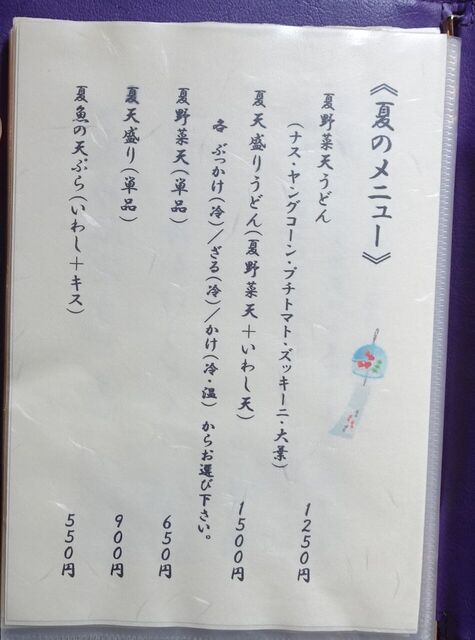 《夏のメニュー》
夏野菜天うどん
(ナス・ヤングコーン・プチトマト・ズッキーニ・大葉) 1250円
夏天盛りうどん(夏野菜天+いわし天) 1500円
各 ぶっかけ(冷)/ざる(冷)/かけ(冷・温) からお選び下さい。
夏野菜天(単品) 650円
夏天盛り(単品) 900円
夏魚の天ぷら(いわし+キス) 550円